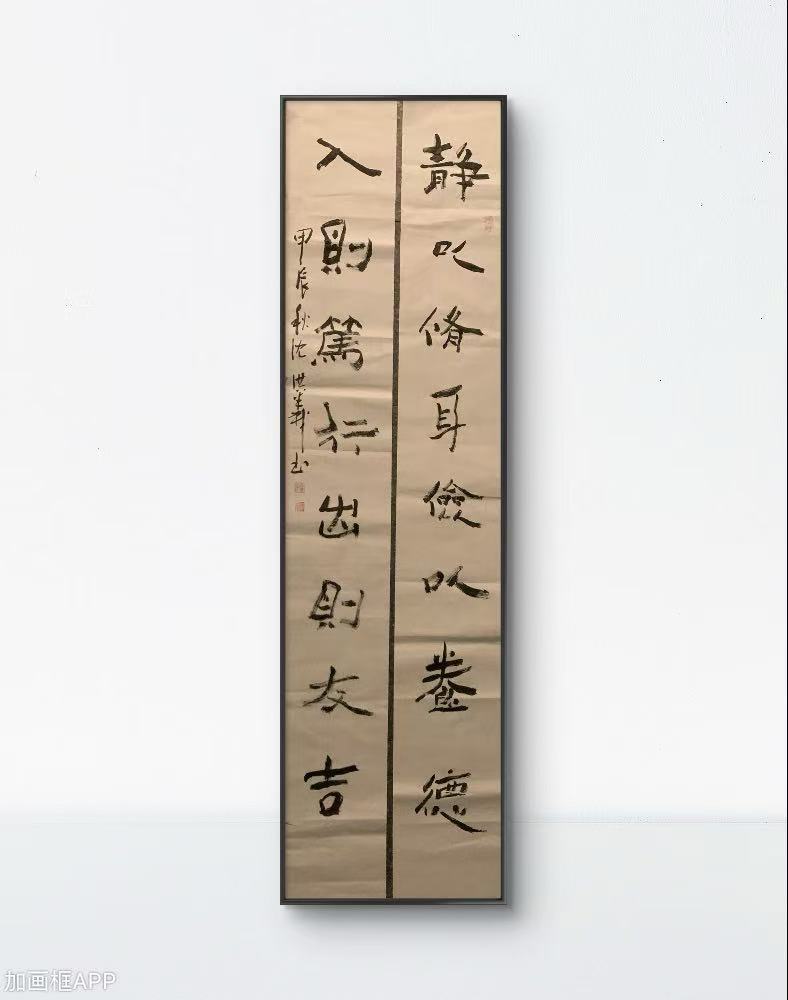 静以脩身儉以養德
入則篤行出則友吉
甲辰秋沈洪義书
加画框APP